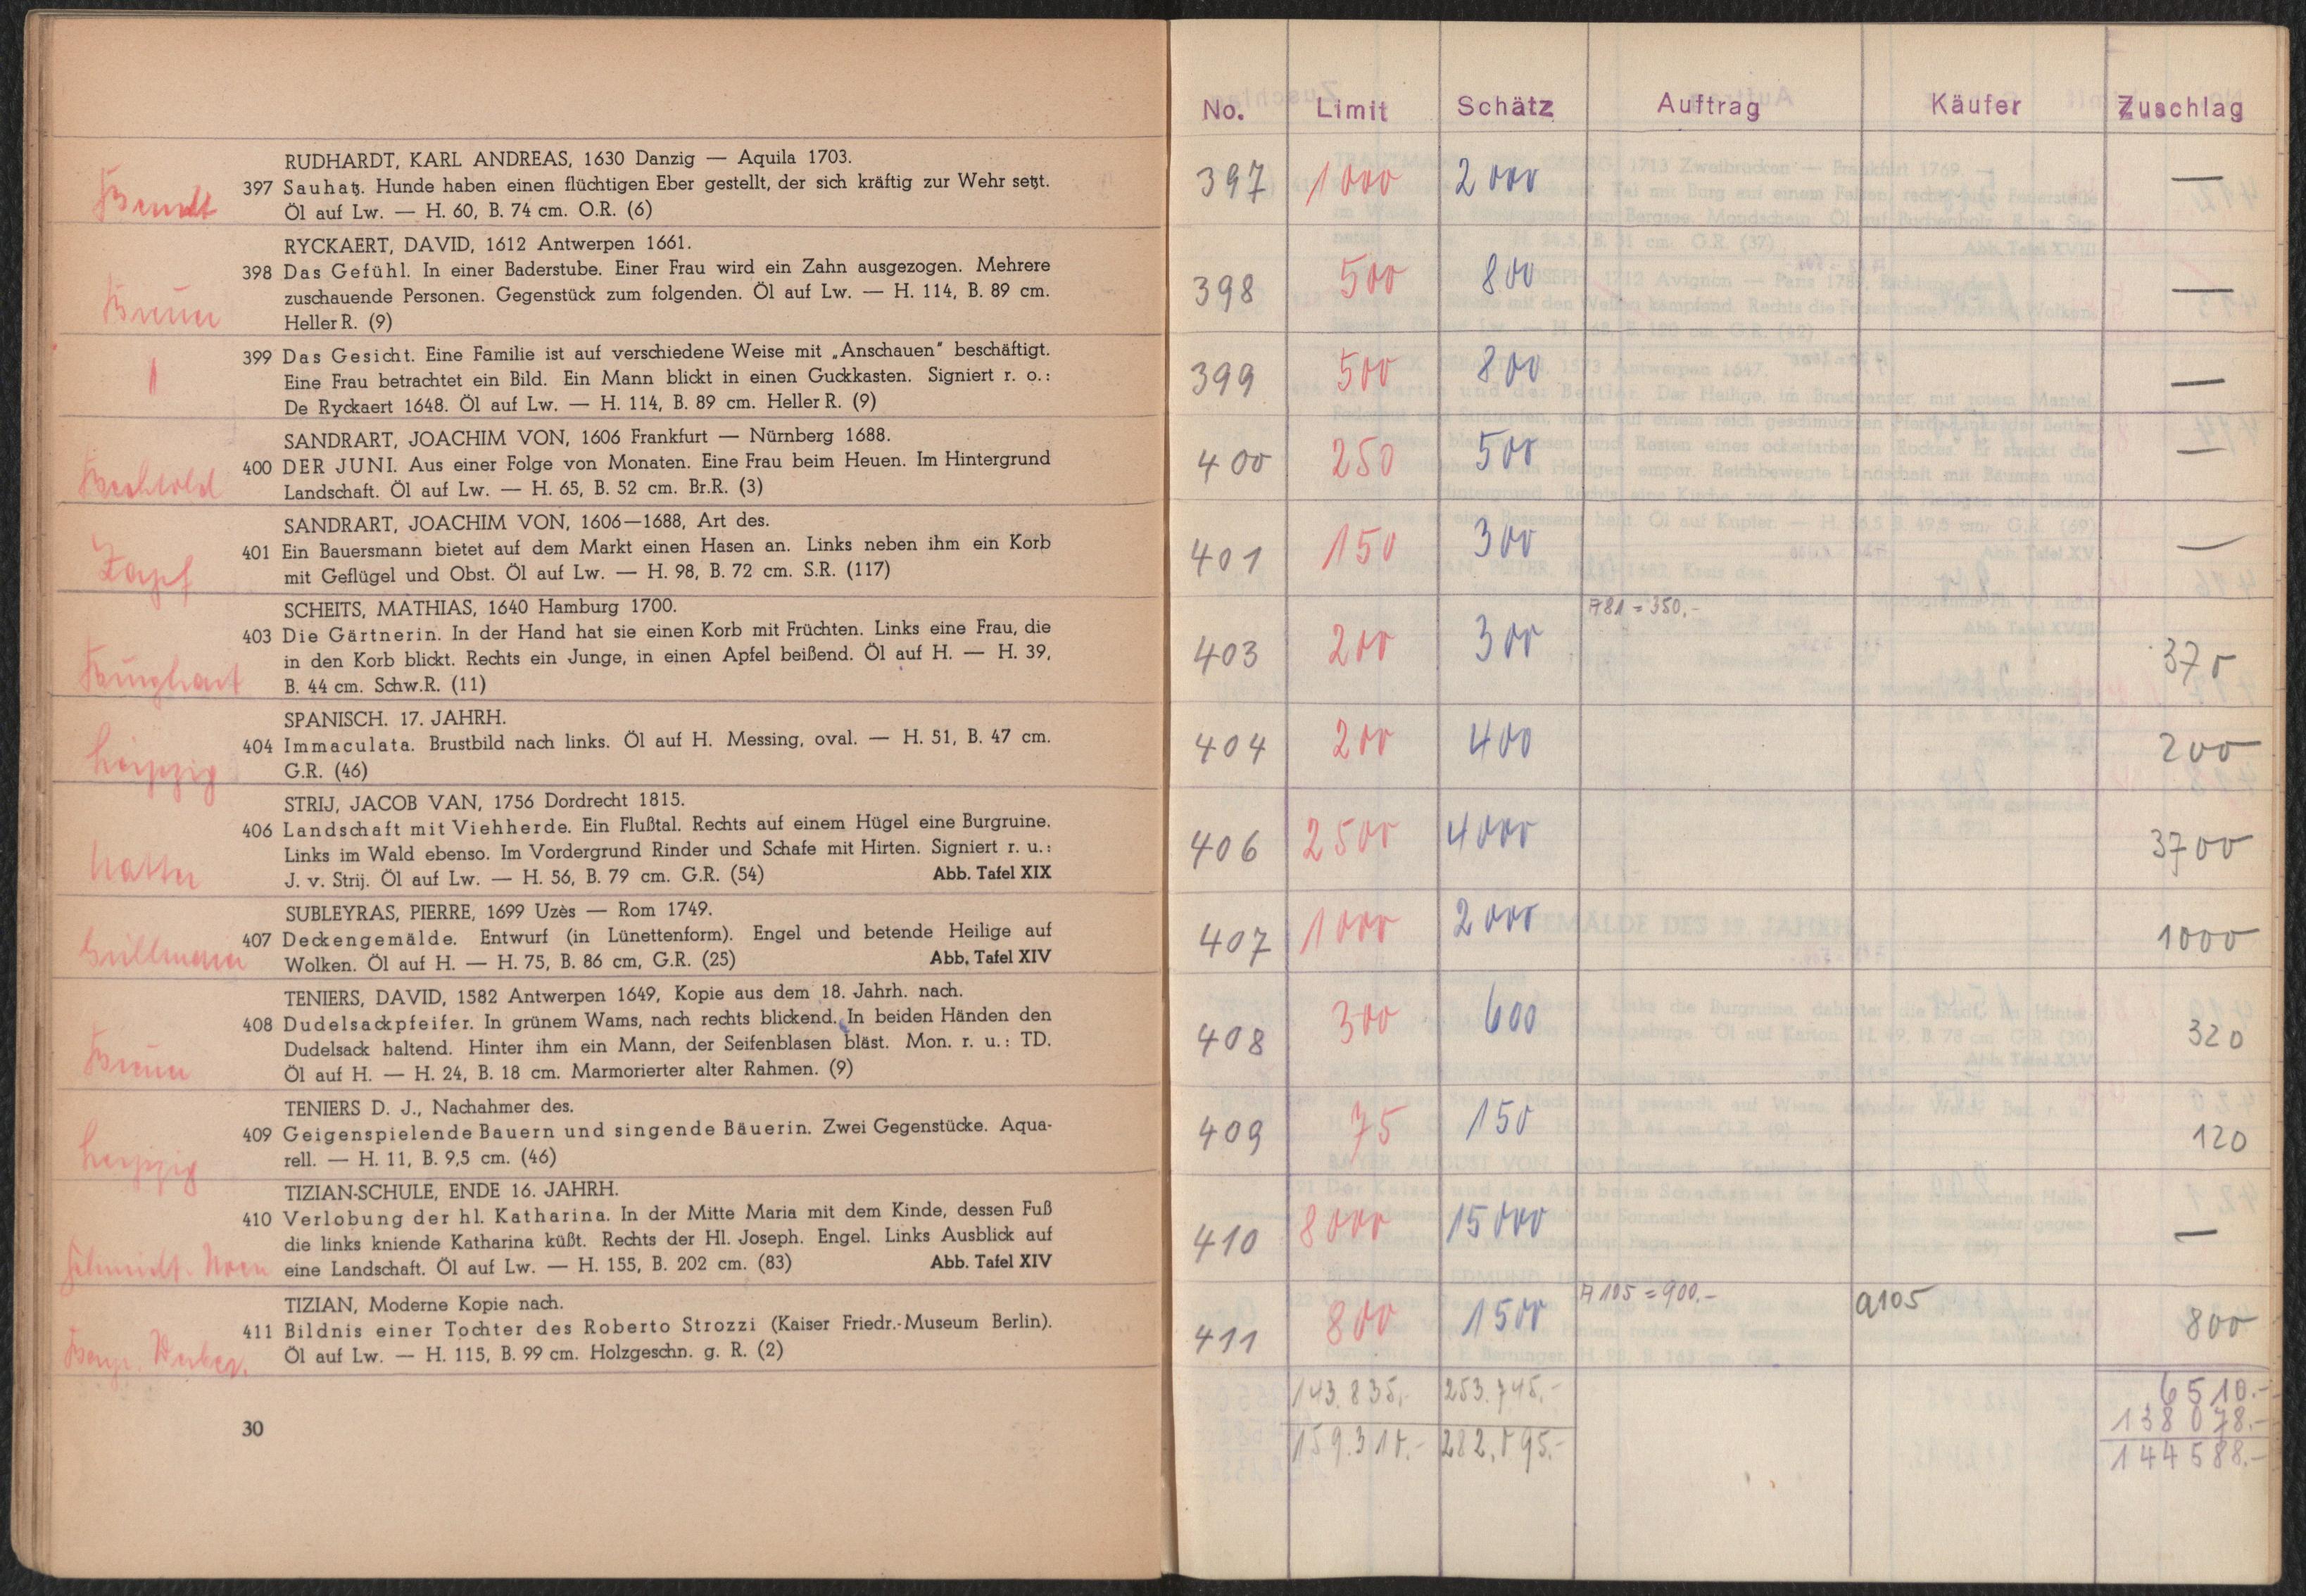 RUDHARDT, KARL ANDREAS, 1630 Danzig — Aquila 1703.
397 Sauhatz. Hunde haben einen flüchtigen Eber gestellt, der sich kräftig zur Wehr setzt.
Öl auf Lw. — H. 60, B. 74 cm. O.R. (6)
RYCKAERT, DAVID, 1612 Antwerpen 1661.
398 Das Gefühl. In einer Baderstube. Einer Frau wird ein Zahn ausgezogen. Mehrere
zuschauende Personen. Gegenstück zum folgenden. Öl auf Lw. — H. 114, B. 89 cm.
Heller R. (9)
399 Das Gesicht. Eine Familie ist auf verschiedene Weise mit „Anschauen" beschäftigt.
Eine Frau betrachtet ein Bild. Ein Mann blickt in einen Guckkasten. Signiert r. o.:
De Ryckaert 1648. Öl auf Lw. — H. 114, B. 89 cm. Heller R. (9)
SANDRART, JOACHIM VON, 1606 Frankfurt — Nürnberg 1688.
400 DER JUNI. Aus einer Folge von Monaten. Eine Frau beim Heuen. Im Hintergrund
Landschaft. Öl auf Lw. — H. 65, B. 52 cm. Br.R. (3)
Bechtold
SANDRART, JOACHIM VON, 1606—1688, Art des.
401 Ein Bauersmann bietet auf dem Markt einen Hasen an. Links neben ihm ein Korb
mit Geflügel und Obst. Öl auf Lw. — H. 98, B. 72 cm. S.R. (117)
Zapf
SCHEITS, MATHIAS, 1640 Hamburg 1700.
403 Die Gärtnerin. In der Hand hat sie einen Korb mit Früchten. Links eine Frau, die
in den Korb blickt. Rechts ein Junge, in einen Apfel beißend. Öl auf H. — H. 39,
B. 44 cm. Schw.R. (11)
SPANISCH. 17. JAHRH.
404 Immaculata. Brustbild nach links. Öl auf H. Messing, oval. — H. 51, B. 47 cm.
G.R. (46)
Leipzig
STRIJ, JACOB VAN, 1756 Dordrecht 1815.
406 Landschaft mit Viehherde. Ein Flußtal. Rechts auf einem Hügel eine Burgruine.
Links im Wald ebenso. Im Vordergrund Rinder und Schafe mit Hirten. Signiert r. u.:
J. v. Strij. Öl auf Lw. — H. 56, B. 79 cm. G.R. (54) Abb. Tafel XIX
SUBLEYRAS, PIERRE, 1699 Uzès — Rom 1749.
407 Deckengemälde. Entwurf (in Lünettenform). Engel und betende Heilige auf
Wolken. Öl auf H. — H. 75, B. 86 cm, G.R. (25) Abb. Tafel XIV
TENIERS, DAVID, 1582 Antwerpen 1649, Kopie aus dem 18. Jahrh. nach.
408 Dudelsackpfeifer. In grünem Wams, nach rechts blickend. In beiden Händen den
Dudelsack haltend. Hinter ihm ein Mann, der Seifenblasen bläst. Mon. r. u.: TD.
Öl auf H. — H. 24, B. 18 cm. Marmorierter alter Rahmen. (9)
TENIERS D. J., Nachahmer des.
409 Geigenspielende Bauern und singende Bäuerin. Zwei Gegenstücke. Aqua-
rell. — H. 11, B. 9,5 cm. (46)
Leipzig
TIZIAN-SCHULE, ENDE 16. JAHRH.
410 Verlobung der hl. Katharina. In der Mitte Maria mit dem Kinde, dessen Fuß
die links kniende Katharina küßt. Rechts der Hl. Joseph. Engel. Links Ausblick auf
eine Landschaft. Öl auf Lw. — H. 155, B. 202 cm. (83) Abb. Tafel XIV
TIZIAN, Moderne Kopie nach.
411 Bildnis einer Tochter des Roberto Strozzi (Kaiser Friedr.-Museum Berlin).
Öl auf Lw. — H. 115, B. 99 cm. Holzgeschn. g. R. (2)
30
No. Limit Schätz Auftrag Käufer Zuschlag
397 1000 2000 —
398 500 800 —
399 500 800 —
400 250 500 —
401 150 300 —
403 200 300 A 81 = 350.- 370
404 200 400 200
406 2500 4000 3700
407 1000 2000 1000
408 300 600 320
409 75 150 120
410 8000 15000 —
411 800 1500 A 105 = 900.- a105 800
143.835,- 253.745.- 6510.-
138078.-
159.310.- 282.095.- 144588.-